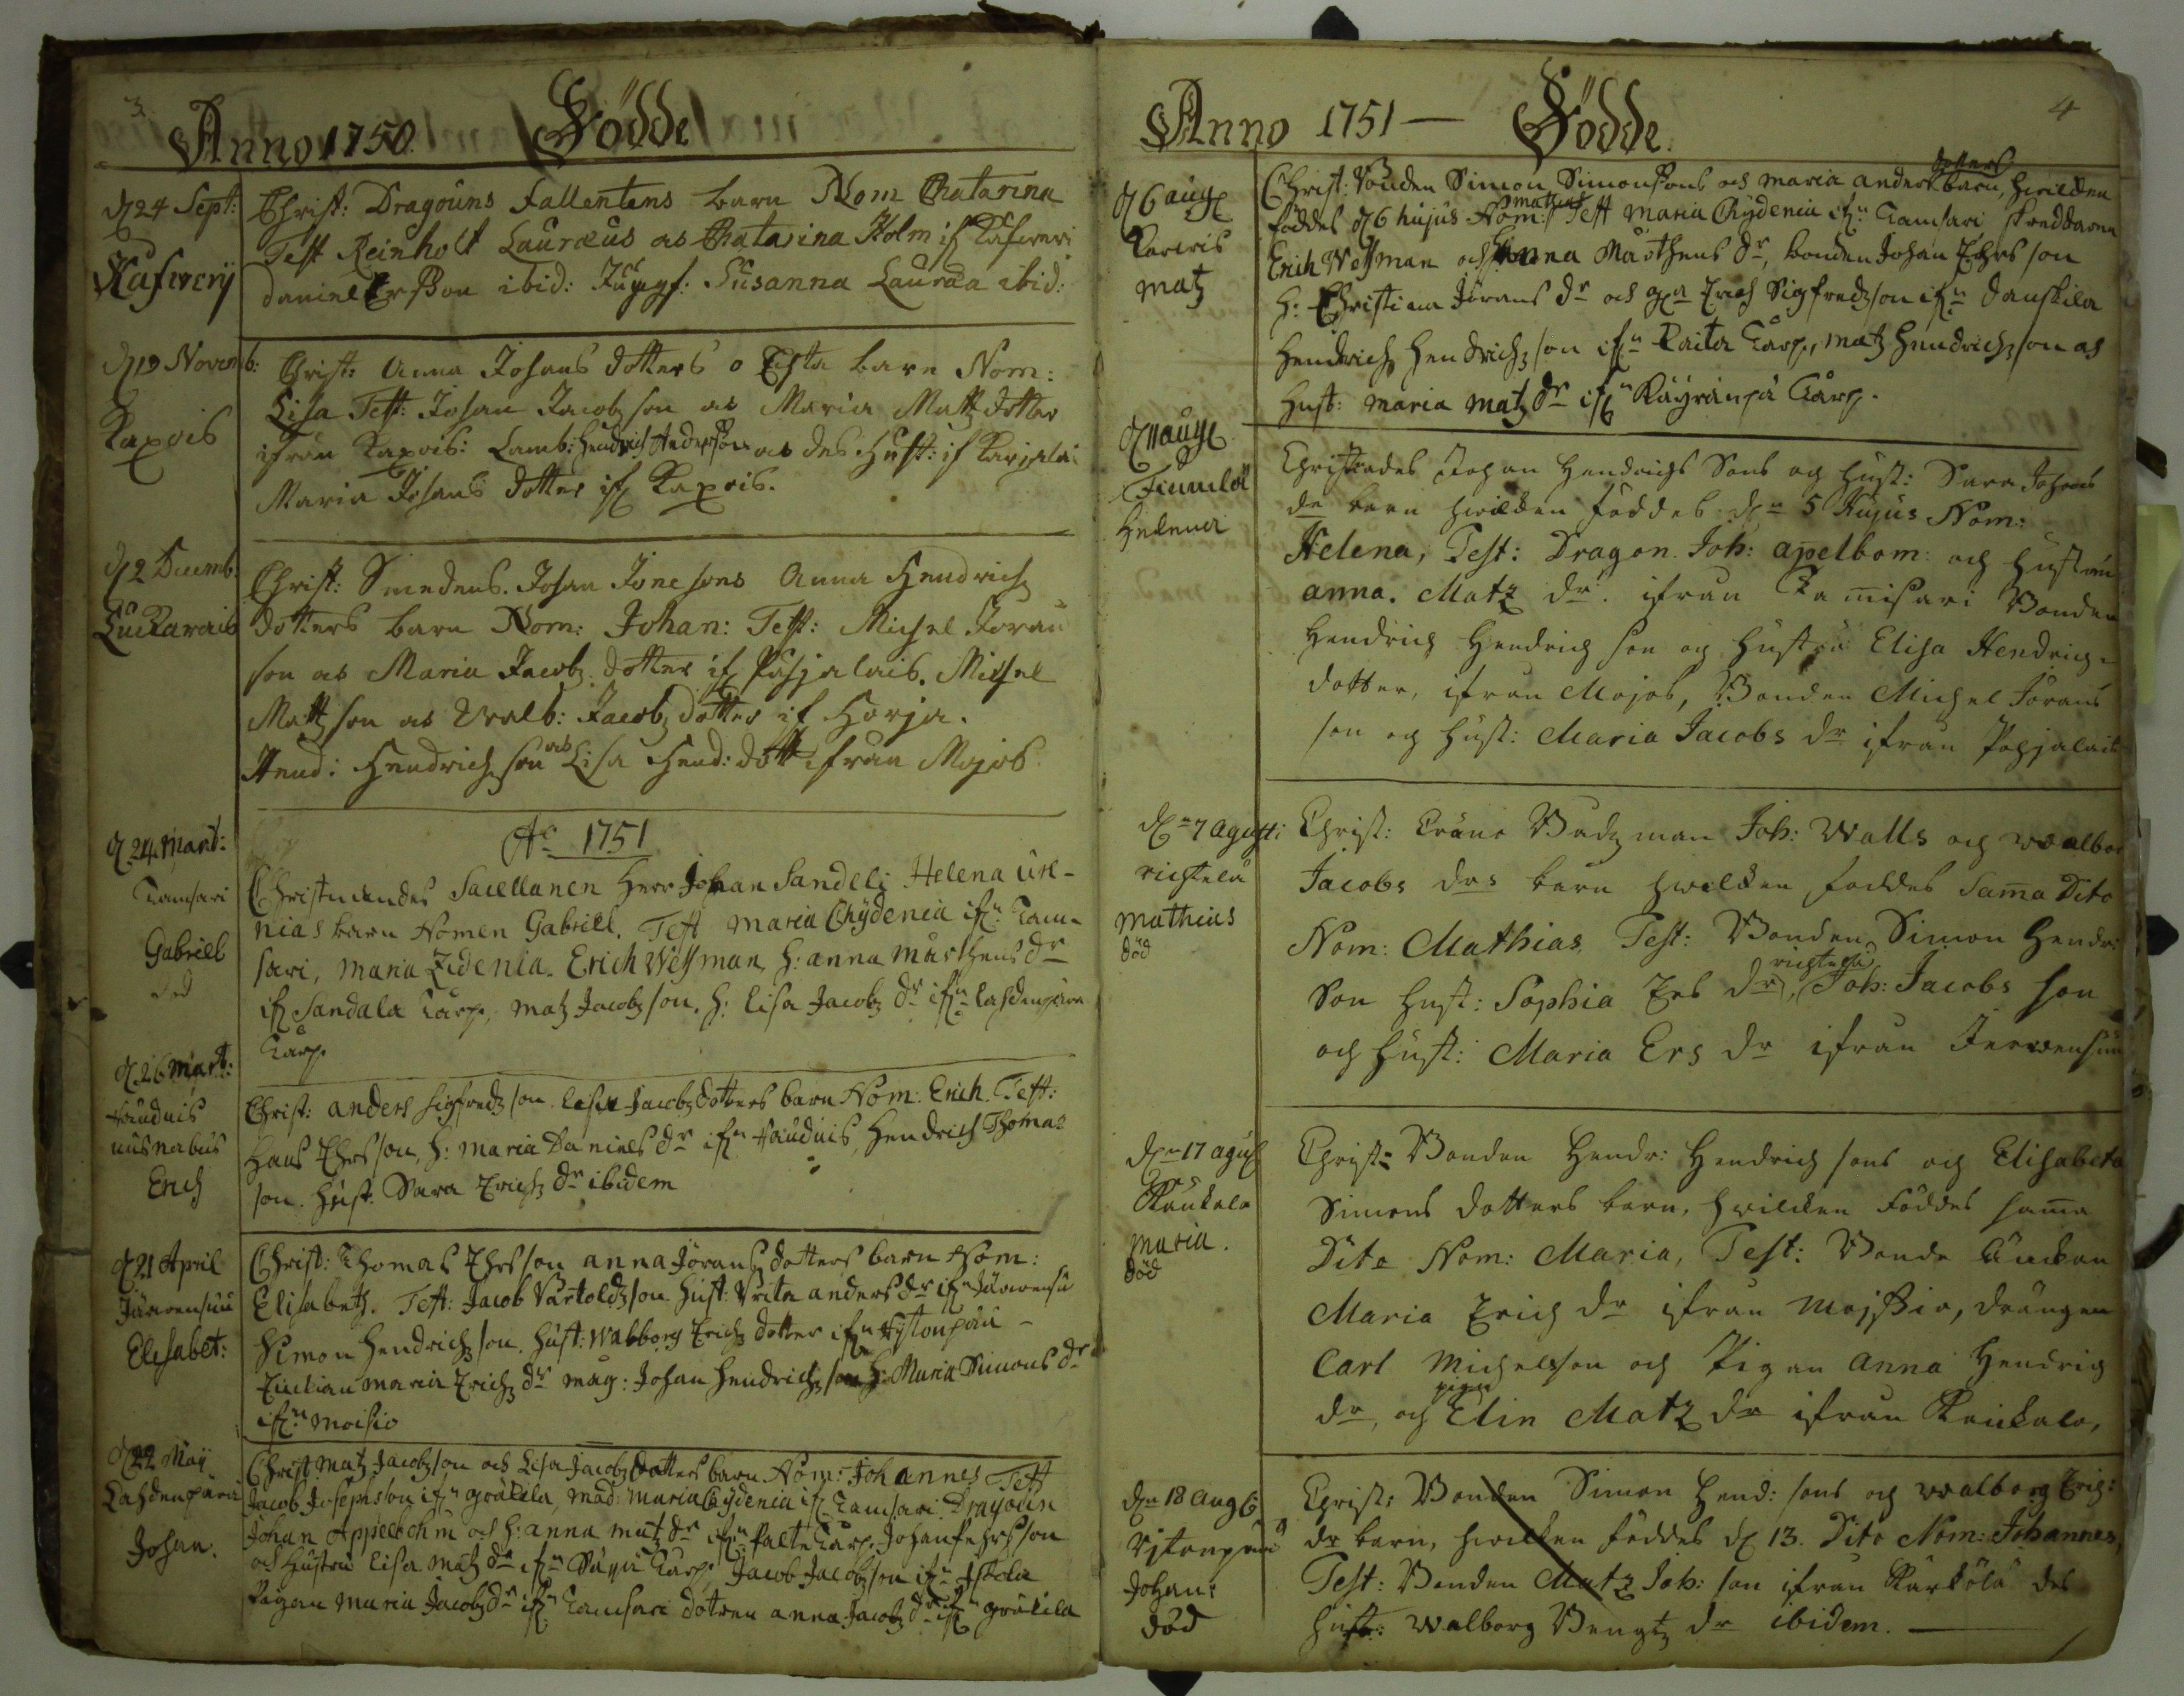 3.
Anno 1750. Födde
d 24 Sept: Christ: Dragouns Fallentens barn Nom Chatarina
Test Reinholt Lauræus och Chatarina Holm if Kafweri
Kafwerÿ
Daniel Ersson ibid: Jungf: Susanna Lauræa ibid:
d 19 Novemb: Christ: Anna Johans dotters o Echta barn Nom:
Lisa Test: Johan Jacobson och Maria Matz dotter
Kaxois
ifrån Kaxois: Lamb: Hendrich Andersson och des Hust: if Karjalai
Maria Johans dotter if Kaxois.
d 2 Decemb: Christ: Smedens Johan Jone sons Anna Hendrichz
Luckarais dotters barn Nom: Johan: Test: Michel Jöran
son och Maria Jacobz dotter if Pohjalais. Michel
Mattz son och Walb: Jacobz dotter if Horja.
Hend: Hendrich son och Lisa Hend: dott ifrån Mojos
Ao 1751
d 24 Mart:
Tamsari
Gabriell
död
Christnades Sacellanen Herr Johan Sandelz Helena Url-
nias barn Nomen Gabriell. Test Maria Chydenia ifn Tam-
sari, Maria Zidenia. Erich Wessman, H: Anna Mårthens dr
if Sandala Torp, Matz Jacobz son. H: Lisa Jacobz dr ifn Lahdenpära
Torp.
d 26 Mart:
Haudnis
nusnabus
Erich
Christ: Anders Sigfredz son Lisa Jacobz dotters barn Nom: Erich. Test:
Hans Ehrsson, H: Maria Daniels dr ifn Haudnis, Hendrich Thomas
son. Hust. Sara Erichz dr ibidem
d 21 April
Järwensuu
Elisabet:
Christ: Thomas Ehrsson Anna Jörans dotters barn Nom:
Elisabeth. Test: Jacob Bartoldz son. Hust: Brita Anders dr ifn Järwensu
Simon Hendrichz son. Hust: Walborg Erichz dotter ifn Ristonpää
Enckian Maria Erichz dr Mag: Johan Hendrichz son H: Maria Simons dr
ifn Moisio
d 22 Maÿ
Lahdenpära
Johan.
Christ Matz Jacobz son och Lisa Jacobz dotters barn Nom: Johannes Test
Jacob Josephsson ifn Gräkila, Mad: Maria Chydenia if Tamsari. Dragoun
Johan Appelbohm och H: Anna Matz dr ifn Palte Torp. Johan Ehrsson
och Hustru Lisa Matz dr ifn Torp. Jacob Jacobz son ifn Iskola
Pigan Maria Jacobz dr ifn Tamsari dotren Anna Jacobz dr ifn Gräkila
4
Anno 1751 — Födde.
d 6 aug
Karwis
Matz
Christ: Bonden Simon Simonssons och Maria Anders dotters barn, hwilken
föddes d 6 hujus Nom: Mathias Test Maria Chydenia ifn Tamsari
Erich Wessman och Anna Mårthens dr, bonden Johan Ehrs son
H: Christina Jörans dr och Erich Sigfredz son ifn Danskila
Hendrich Hendrichz son ifn Raita Torp, Matz Hendrichz son och
Hust: Maria Matz dr ifn Käyränpä Torp.
d 11 aug
Helena
Christnades Johan Hendrichs Sons och Hust: Sara Johans
dr barn hwilken föddes dn 5 Hujus Nom:
Helena, Test: Dragon. Joh: Apelbom: och Hustru
Anna. Matz dr. ifrån Tamisari Bonden
Hendrich Hendrich son och Hustru Elisa Hendrich-
dotter, ifrån Mojos, Bonden Michel Jörans
son och Hust: Maria Jacobs dr ifrån Pohjalais
dn 7 Agusti
Richtela
Mathius
död
Christ: Crono Badz man Joh: Walls och Walbor
Jacobs drs barn hwilken föddes Sama Dito
Nom: Mathias, Test: Bonden Simon Hendr:
Son Hust: Sophia Ers dr, richtela, Joh: Jacobs son
och Hust: Maria Ers dr ifrån Jerwensuu
dn 17 agus
Kaukola
Maria.
död
Christ: Bonden Hendr: Hendrich sons och Elisabeta
Simons dotters barn, hwilken föddes sama
Dito Nom: Maria, Test: Bonde Änckan
Maria Erich dr ifrån Mojssio, Drängen
Carl Michelsson och Pigan Anna Hendrich
dr, och pigan Elin Matz dr ifrån Kaukola,
dn 18 Aug
Ristonpää
Johan:
död
Christ: Bonden Simon Hend: sons och Walborg Erich:
dr barn, hwilken föddes d 13. Dito Nom: Johannes,
Test: Bonden Matz Joh: son ifrån Kärkölä des
Hust: Walborg Bengtz dr ibidem.